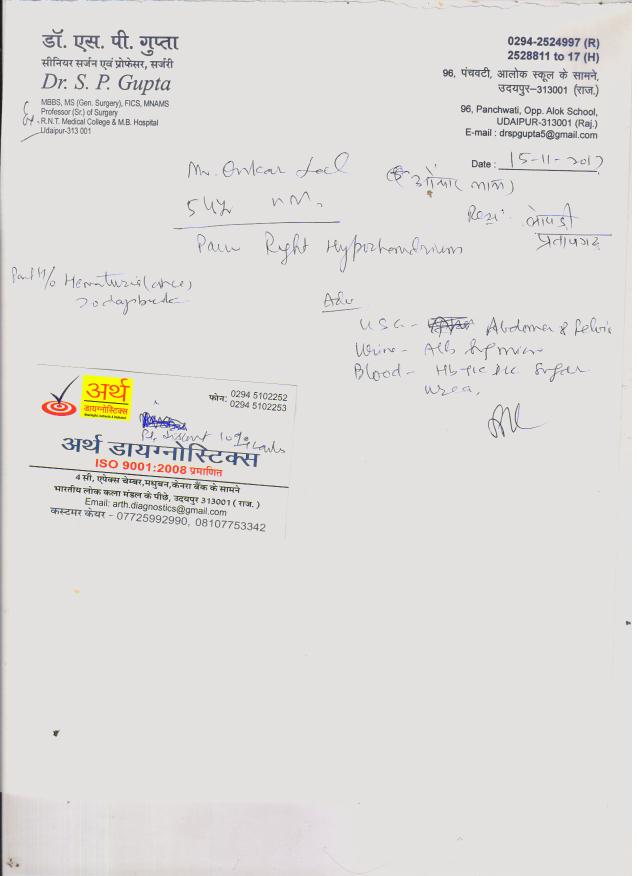 डॉ. एस. पी. गुप्ता
सीनियर सर्जन एवं प्रोफेसर, सर्जरी
Dr. S. P. Gupta
MBBS, MS (Gen. Surgery), FICS, MNAMS
Professor (Sr.) of Surgery
R.N.T. Medical College & M.B. Hospital
Udaipur-313 001
0294-2524997 (R)
2528811 to 17 (H)
96, पंचवटी, आलोक स्कूल के सामने,
उदयपुर–313001 (राज.)
96, Panchwati, Opp. Alok School,
UDAIPUR-313001 (Raj.)
E-mail : drspgupta5@gmail.com
Date : 15-11-2017
Mr. Onkar Lal
54y
प्रतापगढ़
Pain Right Hypochondrium
Hematuria (once)
20 days back
Adv
USG - Abdomen & Pelvis
Urine - Alb Sug micro
Blood - Hb TLC DLC Sugar
Urea,
अर्थ
डायग्नोस्टिक्स
फोन: 0294 5102252
0294 5102253
अर्थ डायग्नोस्टिक्स
ISO 9001:2008 प्रमाणित
4 सी, एपेक्स चेम्बर,मधुबन,केनरा बैंक के सामने
भारतीय लोक कला मंडल के पीछे, उदयपुर 313001 ( राज. )
Email: arth.diagnostics@gmail.com
कस्टमर केयर - 07725992990, 08107753342